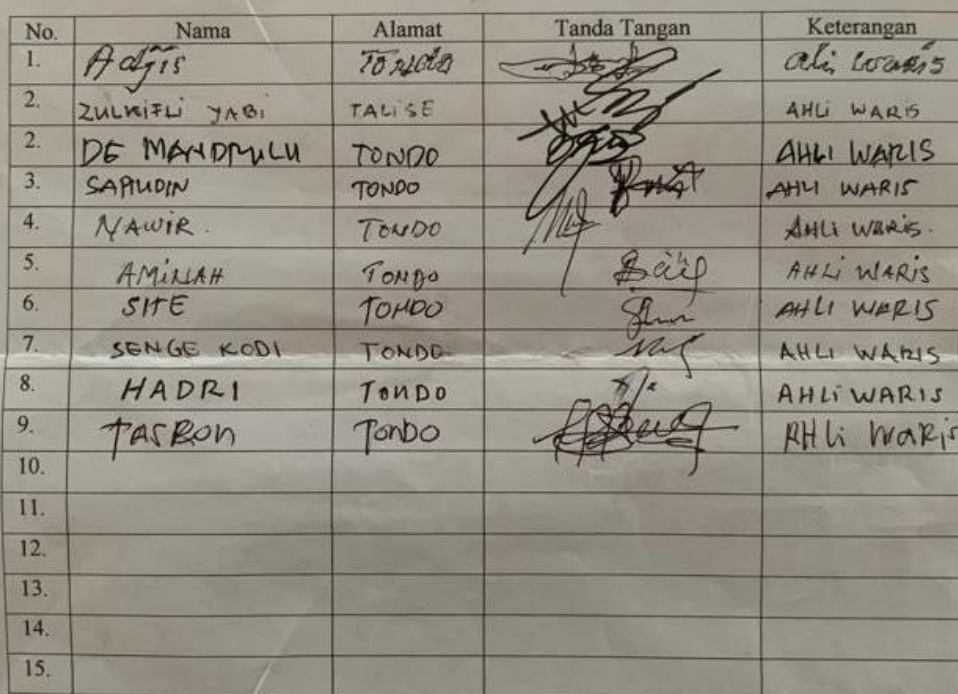 No. Nama Alamat Tanda Tangan Keterangan
1. Adjis Tondo ahli waris
2. ZULKIFLI YABI TALISE AHLI WARIS
2. DE MANDMULU TONDO AHLI WARIS
3. SAPIUDIN TONDO AHLI WARIS
4. NAWIR. TONDO AHLI WARIS.
5. AMINAH TONDO AHLI WARIS
6. SITE TONDO AHLI WARIS
7. SENGE KODI TONDO AHLI WARIS
8. HADRI TONDO AHLI WARIS
9. TASRON TONDO AHLI WARIS
10.
11.
12.
13.
14.
15.